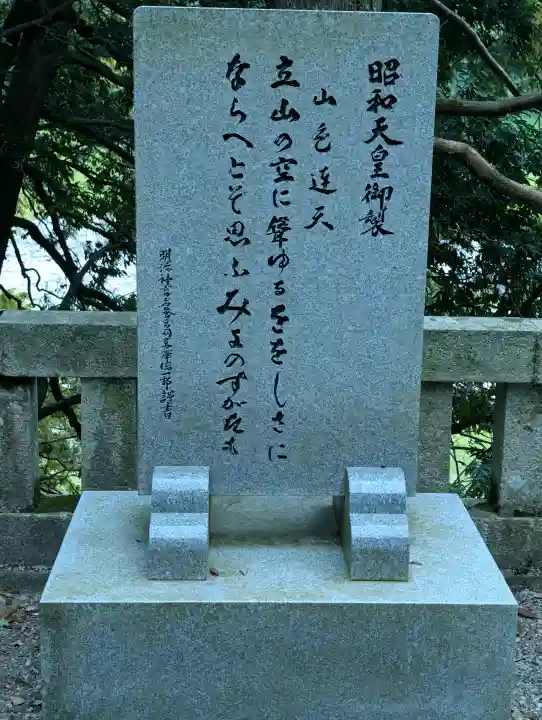 昭和天皇御製
山色連天
立山の空に聳ゆるををしさに
ならへとぞ思ふみよのすがたも
明治神宮名誉宮司 高澤信一郎 謹書